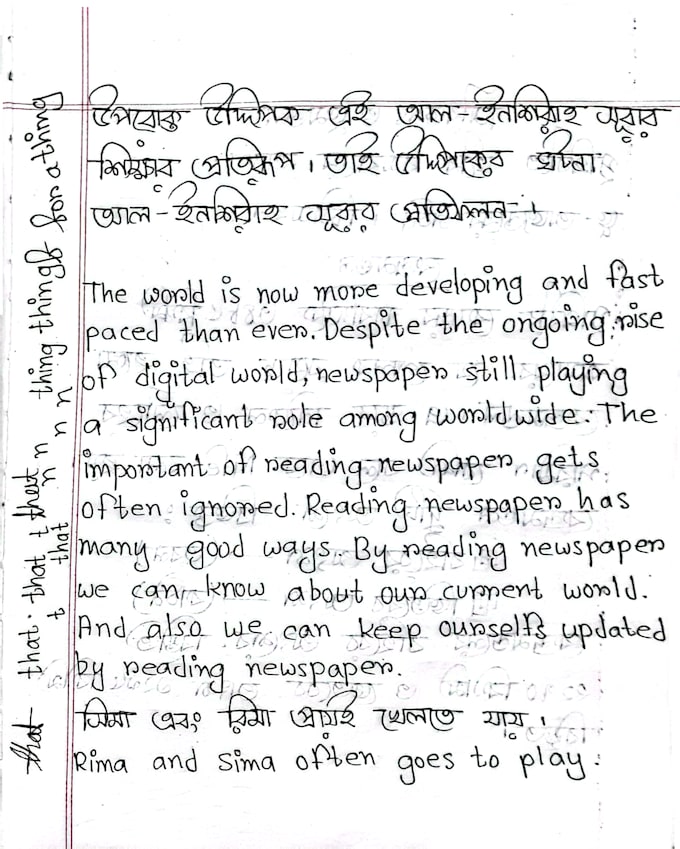 উপরোক্ত উদ্দিপক এই আল-ইনশিরাহ সূরার
শিক্ষার প্রতিরূপ। তাই উদ্দিপকের ঘটনা
আল-ইনশিরাহ সূরার প্রতিফলন।
The world is now more developing and fast
paced than ever. Despite the ongoing rise
of digital world, newspaper still playing
a significant role among worldwide. The
important of reading newspaper gets
often ignored. Reading newspaper has
many good ways. By reading newspaper
we can know about our current world.
And also we can keep ourselfs updated
by reading newspaper.
সিমা এবং রিমা প্রায়ই খেলতে যায়।
Rima and Sima often goes to play.
that that that t thing things for a thing
t that n n n n